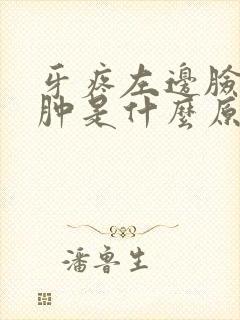 牙疼左邊臉
肿是什麼原
潘魯生